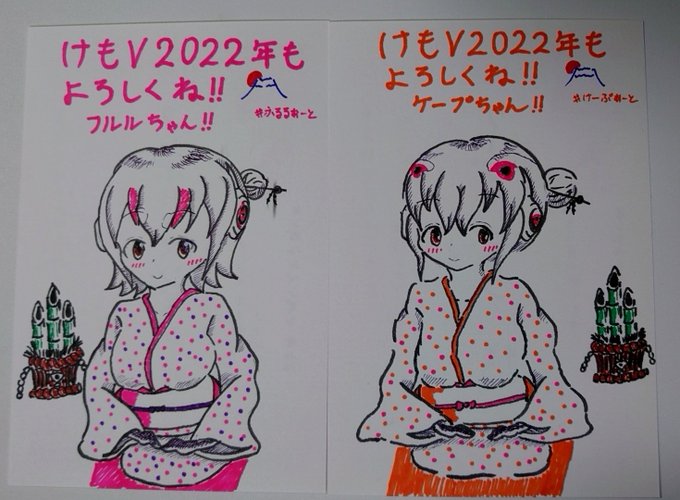 けもV2022年も
よろしくね!!
フルルちゃん!!
#ふるるあーと
けもV2022年も
よろしくね!!
ケープちゃん!!
#けーぷあーと